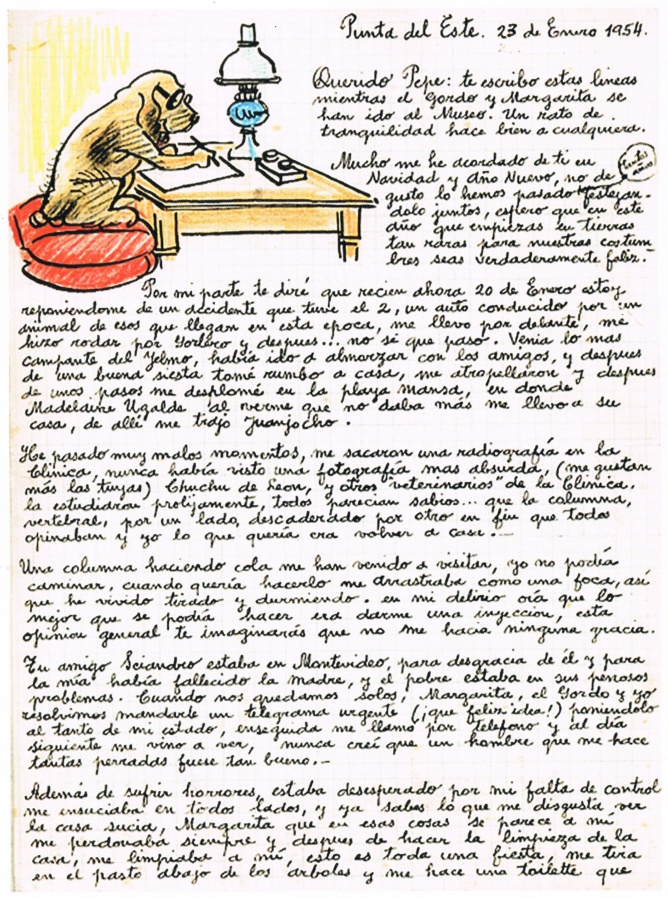 Punta del Este. 23 de Enero 1954.
Querido Pepe: te escribo estas lineas
mientras el Gordo y Margarita se
han ido al Museo. Un rato de
tranquilidad hace bien a cualquiera.
Mucho me he acordado de ti en
Navidad y Año Nuevo, no de
gusto lo hemos pasado festejan-
dolo juntos, espero que en este
año que empiezas en tierras
tan raras para nuestras costum
bres seas verdaderamente feliz.-
Por mi parte te diré que recien ahora 20 de Enero estoy
reponiendome de un accidente que tuve el 2, un auto conducido por un
animal de esos que llegan en esta epoca, me llevo por delante, me
hizo rodar por Gorlero y despues... no sé que paso. Venia lo mas
campante del Yelmo, había ido a almorzar con los amigos, y despues
de una buena siesta tomé rumbo a casa, me atropellaron y despues
de unos pasos me desplomé en la playa mansa, en donde
Madeldine Ugalde al verme que no daba más me llevo a su
casa, de alli me trajo Juanjocho.
He pasado muy malos momentos, me sacaron una radiografía en la
Clinica, nunca había visto una fotografía mas absurda, (me gustan
más las tuyas) Chuchu de Leon, y otros "veterinarios" de la Clinica,
la estudiaron prolijamente, todos parecian sabios... que la columna,
vertebral, por un lado, descaderado por otro en fin que todos
opinaban y yo lo que quería era volver a casa.-
Una columna haciendo cola me han venido a visitar, yo no podía
caminar, cuando quería hacerlo me arrastraba como una foca, así
que he vivido tirado y durmiendo. en mi delirio oía que lo
mejor que se podía hacer era darme una inyeccion, esta
opinion general te imaginarás que no me hacia ninguna gracia.
Tu amigo Sciandro estaba en Montevideo, para desgracia de él y para
la mía había fallecido la madre, y el pobre estaba en sus penosos
problemas. Cuando nos quedamos solos, Margarita, el Gordo y yo
resolvimos mandarle un telegrama urgente (¡que feliz idea!) poniendolo
al tanto de mi estado, enseguida me llamó por telefono y al día
siguiente me vino a ver, nunca creí que un hombre que me hace
tantas perradas fuese tan bueno.-
Además de sufrir horrores, estaba desesperado por mi falta de control
me ensuciaba en todos lados, y ya sabes lo que me disgusta ver
la casa sucia, Margarita que en esas cosas se parece a mí
me perdonaba siempre y despues de hacer la limpieza de la
casa, me limpiaba a mí, esto es toda una fiesta, me tira
en el pasto abajo de los árboles y me hace una toilette que